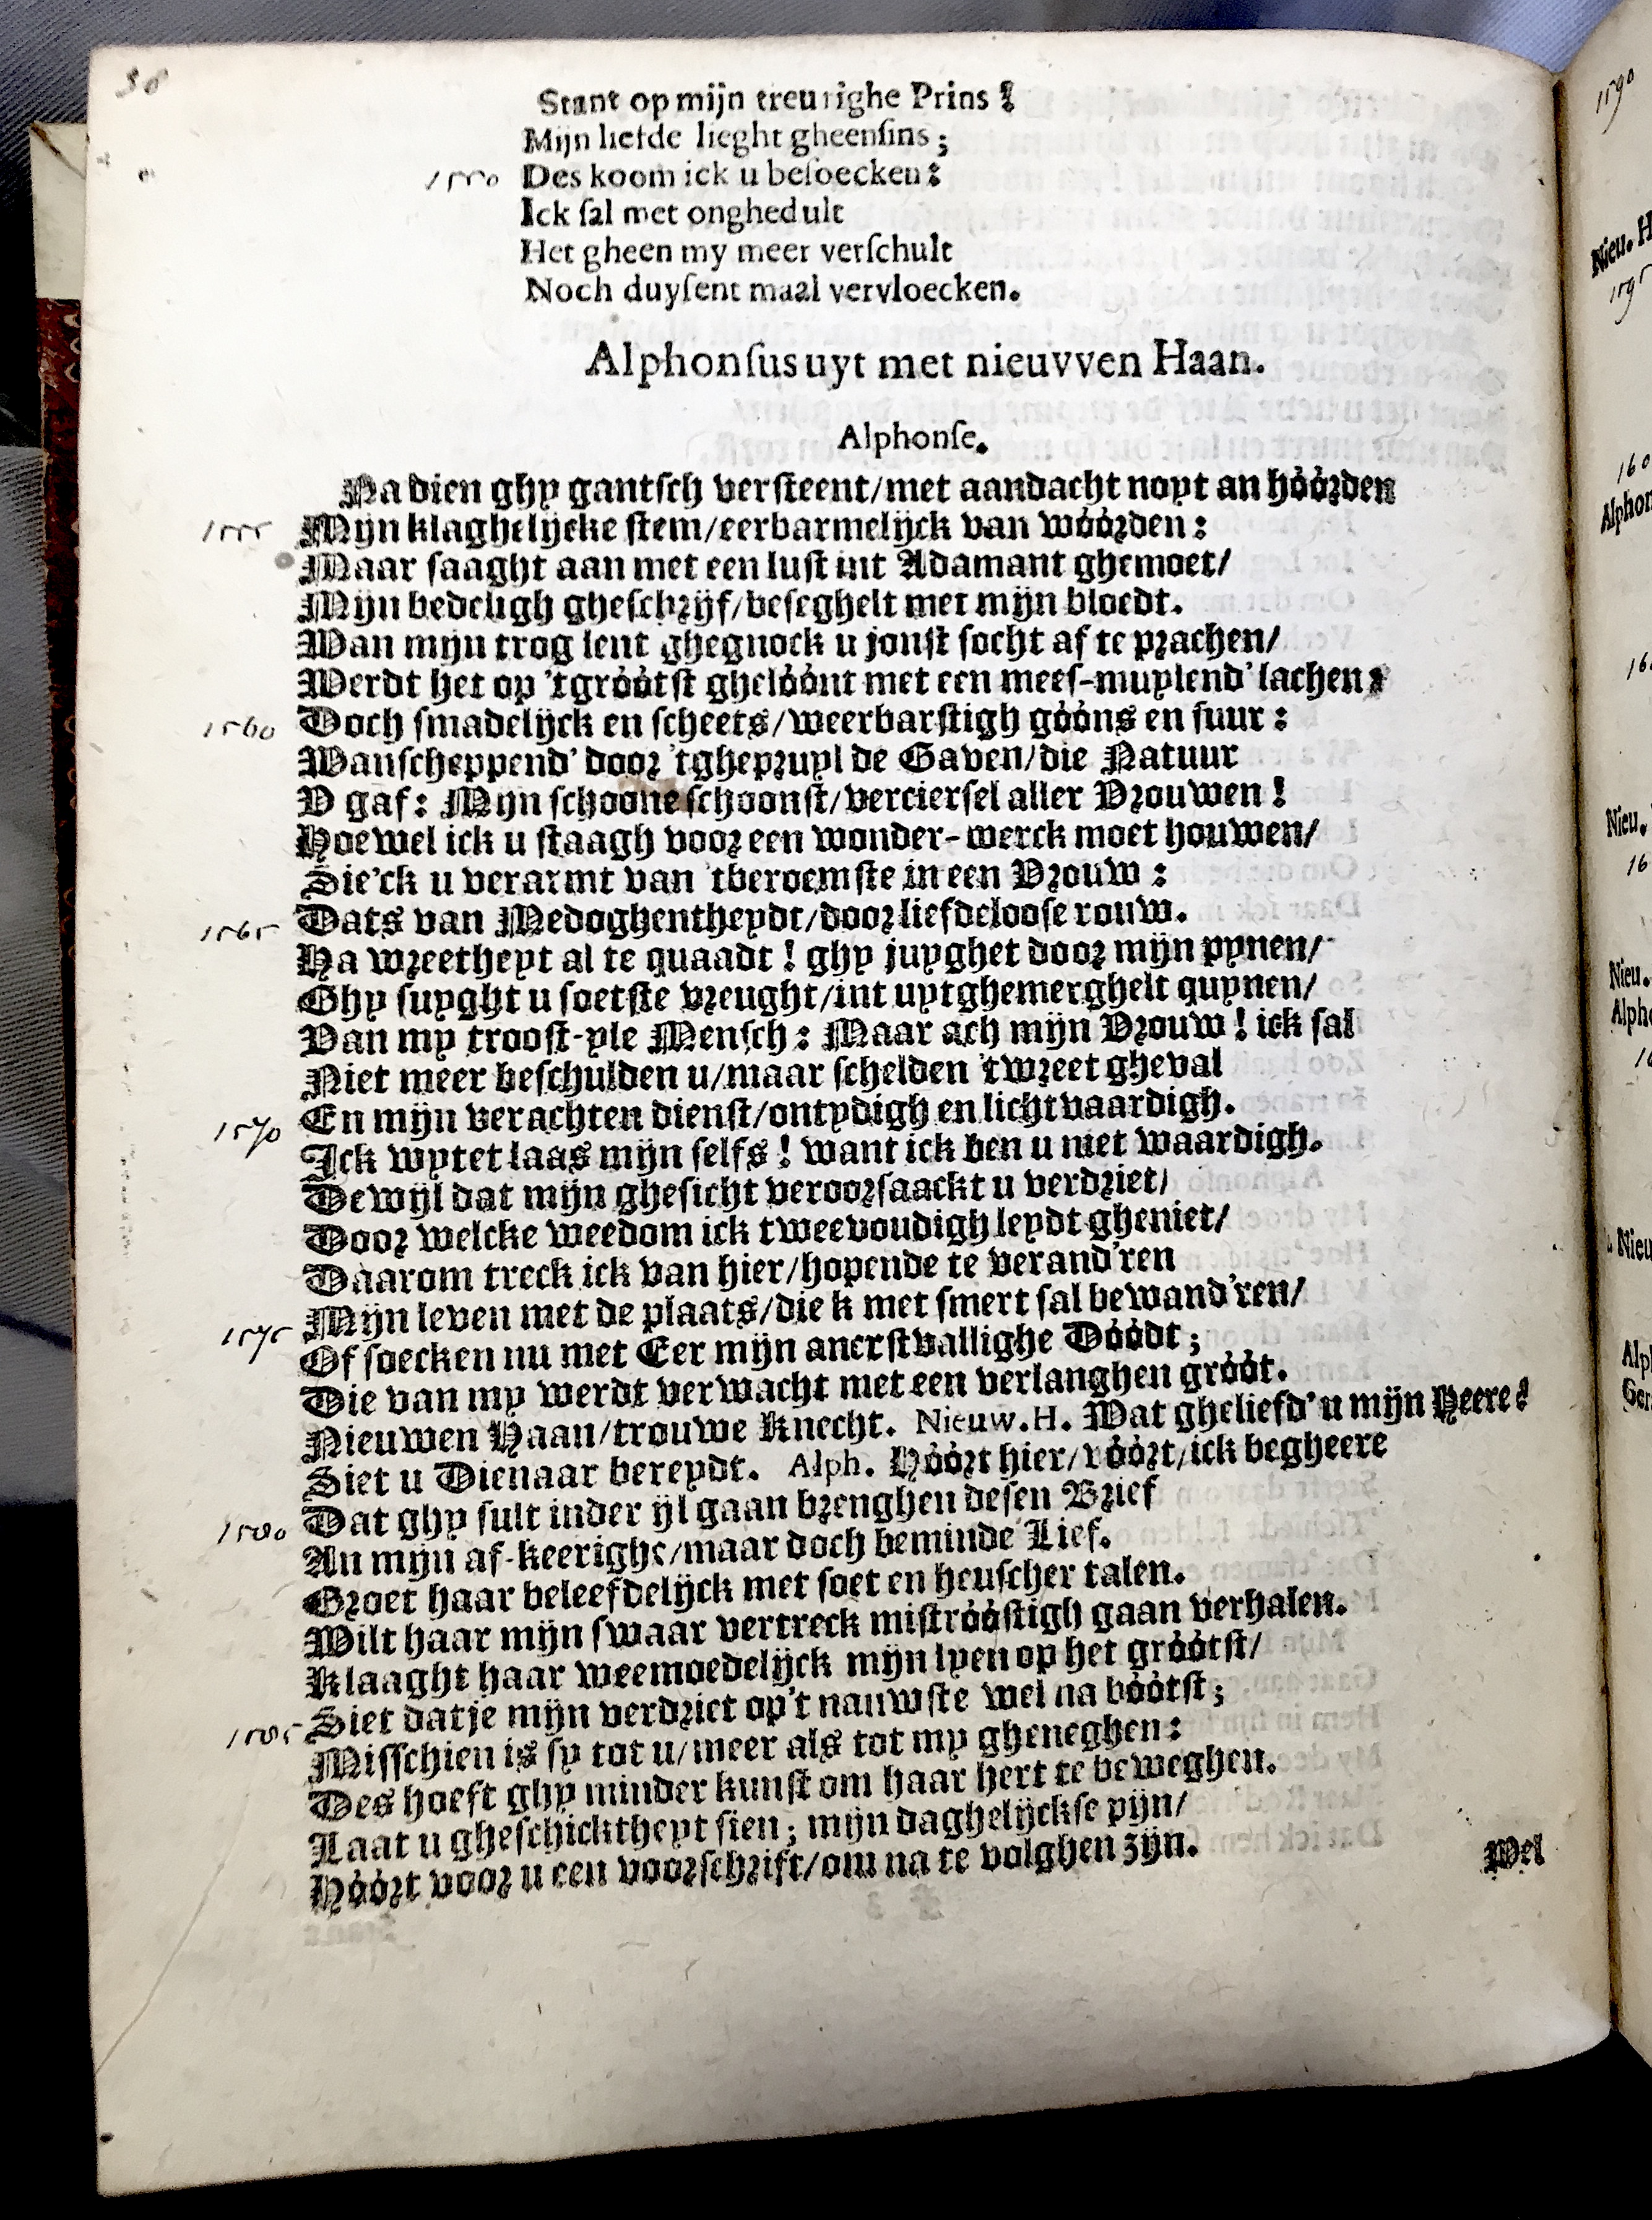 36
Stant op mijn treurighe Prins!
Mijn liefde lieght gheenſins;
1550 Des koom ick u beſoecken:
Ick ſal met onghedult
Het gheen my meer verſchult
Noch duyſent maal vervloecken.
Alphonſus uyt met nieuvven Haan.
Alphonſe.
Na dien ghy gantſch verſteent/met aandacht noyt an hóórden
1555 Mijn klaghelijcke ſtem/eerbarmelijck van wóórden:
Maar ſaaght aan met een luſt int Adamant ghemoet/
Mijn bedeligh gheſchrijf/beſeghelt met mijn bloedt.
Wan mijn trog lent ghegnock u jonſt ſocht af te prachen/
Werdt het op 'tgróótſt ghelóónt met een meeſ-muylend' lachen:
1560 Doch ſmadelijck en ſcheets/weerbarſtigh góóns en ſuur:
Wanſcheppend' door 'tghepruyl de Gaven/die Natuur
V gaf: Mijn ſchoone ſchoonſt/vercierſel aller Vrouwen!
Hoewel ick u ſtaagh voor een wonder-werck moet houwen/
Sie'ck u verarmt van tberoemſte in een Vrouw:
1565 Dats van Medoghentheydt/door liefdelooſe rouw.
Ha wreetheyt al te quaadt! ghy juyghet door mijn pynen/
Ghy ſuyght u ſoetſte vreught/int uytghemerghelt quynen/
Van my trooſt-yle Menſch: Maar ach mijn Vrouw! ick ſal
Niet meer beſchulden u/maar ſchelden 'twreet gheval
1570 En mijn verachten dienſt/ontydigh en lichtvaardigh.
Ick wytet laas mijn ſelfs! want ick ben u niet waardigh.
Dewijl dat mijn gheſicht veroorſaackt u verdriet/
Door welcke weedom ick tweevoudigh leydt gheniet/
Daarom treck ick van hier/hopende te verand'ren
1575 Mijn leven met de plaats/die k met ſmert ſal bewand'ren/
Of ſoecken nu met Eer mijn ancrſtvallighe Dóódt;
Die van my werdt verwacht met een verlanghen gróót.
Nieuwen Haan/trouwe Knecht. Nieuw.H. Wat ghelieſd' u mijn Heere?
Siet u Dienaar bereydt. Alph. Hóórt hier/vóórt/ick begheere
1580 Dat ghy ſult inder ijl gaan brenghen deſen Brief
An mijn af-keerighe/maar doch beminde Lief.
Groet haar beleefdelijck met ſoet en heuſcher talen.
Wilt haar mijn ſwaar vertreck miſtróóſtigh gaan verhalen.
Klaaght haar weemoedelijck mijn lyen op het gróótſt/
1585 Siet datje mijn verdriet op't nauwſte wel na bóótſt;
Miſſchien is ſy tot u/meer als tot my gheneghen:
Des hoeft ghy minder kunſt om haar hert te beweghen.
Laat u gheſchicktheyt ſien; mijn daghelijckſe pijn/
Hóórt voor u een voorſchrift/om na te volghen zijn.
Wel
1590
Nieu. H
1595
160
Alphon
Nieu.
16
Nieu.
Alph
Nieu
Alp
Ger